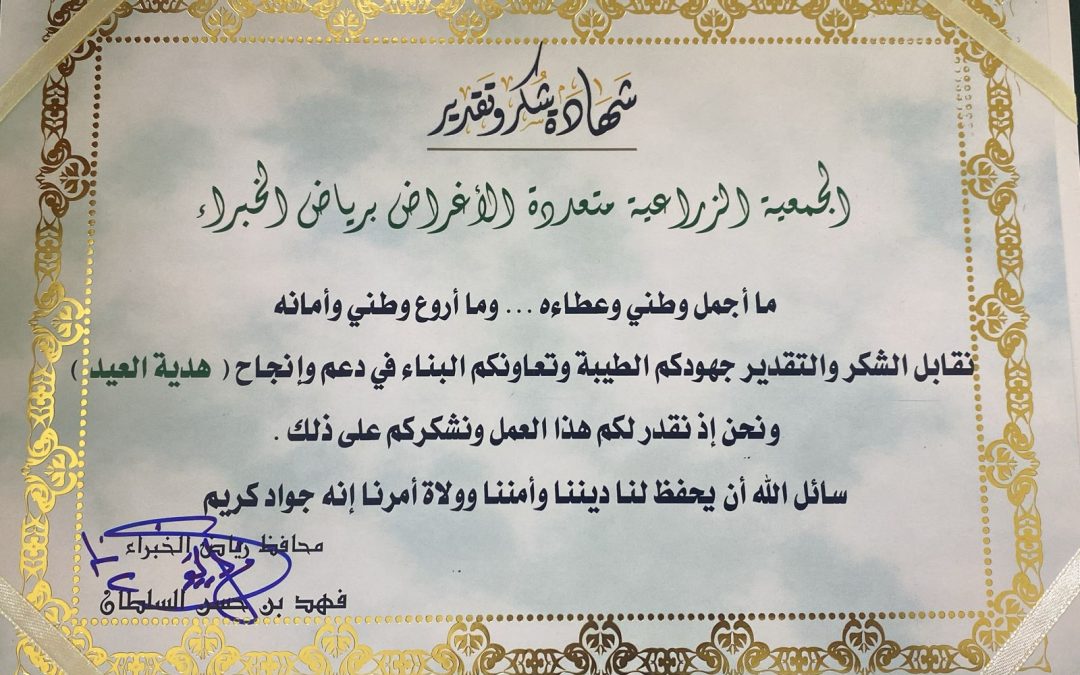 شهادة شكر وتقدير
الجمعية الزراعية متعددة الأغراض برياض الخبراء
ما أجمل وطني وعطاءه ... وما أروع وطني وأمانه
نقابل الشكر والتقدير جهودكم الطيبة وتعاونكم البناء في دعم وإنجاح ( هدية العيد )
ونحن إذ نقدر لكم هذا العمل ونشكركم على ذلك .
سائل الله أن يحفظ لنا ديننا وأمننا وولاة أمرنا إنه جواد كريم
محافظ رياض الخبراء
فهد بن حسن السلطان